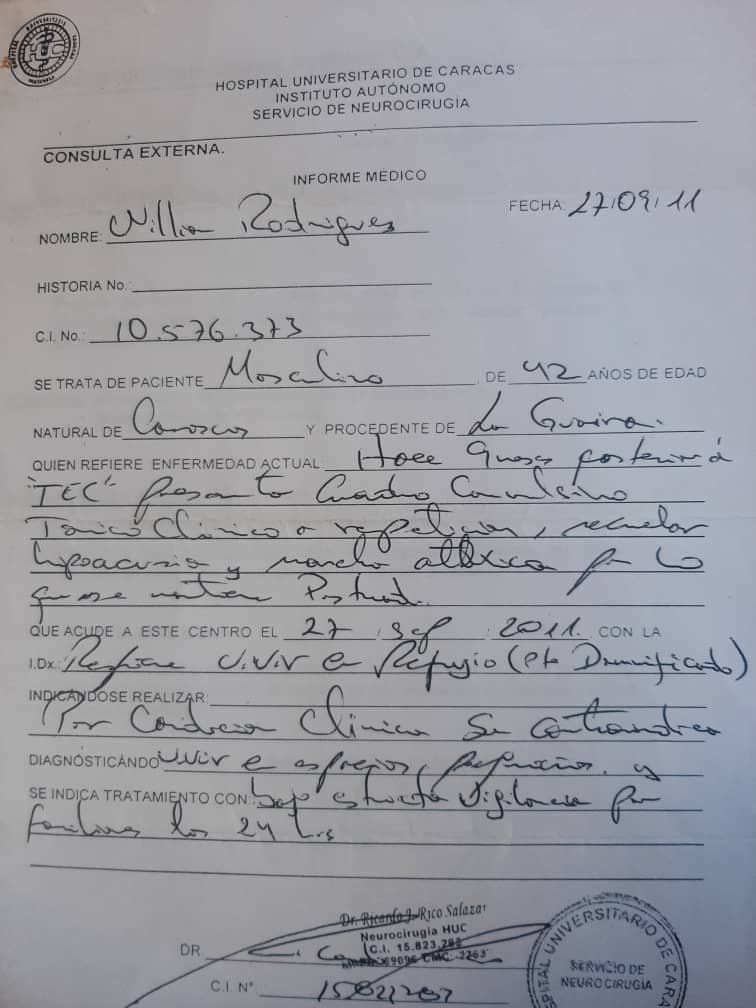 HOSPITAL UNIVERSITARIO DE CARACAS
INSTITUTO AUTÓNOMO
SERVICIO DE NEUROCIRUGÍA
CONSULTA EXTERNA.
INFORME MÉDICO
FECHA: 27/09/11
NOMBRE: Rodrigues
HISTORIA No.:
C.I. No.: 10.576.373
SE TRATA DE PACIENTE Masculino DE 42 AÑOS DE EDAD
NATURAL DE Caracas Y PROCEDENTE DE La Guaira.
QUIEN REFIERE ENFERMEDAD ACTUAL Hace posterior a
"TEC" presento Cuadro Convulsivo
Tonico Clinico a repeticion, secuelas
hipoacusia y marcha ataxica por lo
que se
QUE ACUDE A ESTE CENTRO EL 27 Sep 2011. CON LA
I.Dx: Refiere vivir en Refugio (pte Damnificado)
INDICÁNDOSE REALIZAR:
Por Condicion Clinica Se
DIAGNÓSTICÁNDO vivir en y
SE INDICA TRATAMIENTO CON: bajo estricta vigilancia por
familiares las 24 hrs
Dr. Ricardo J. Rico Salazar
Neurocirugía HUC
C.I. 15.823,
CMC.
DR
C.I. N°
UNIVERSITARIO DE CARA
SERVICIO DE
NEUROCIRUGIA